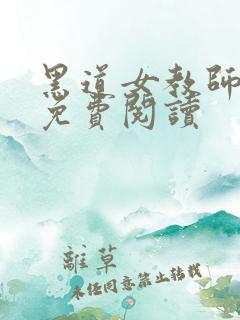 黑道女教師
免費閱讀
離草
未經同意禁止轉載